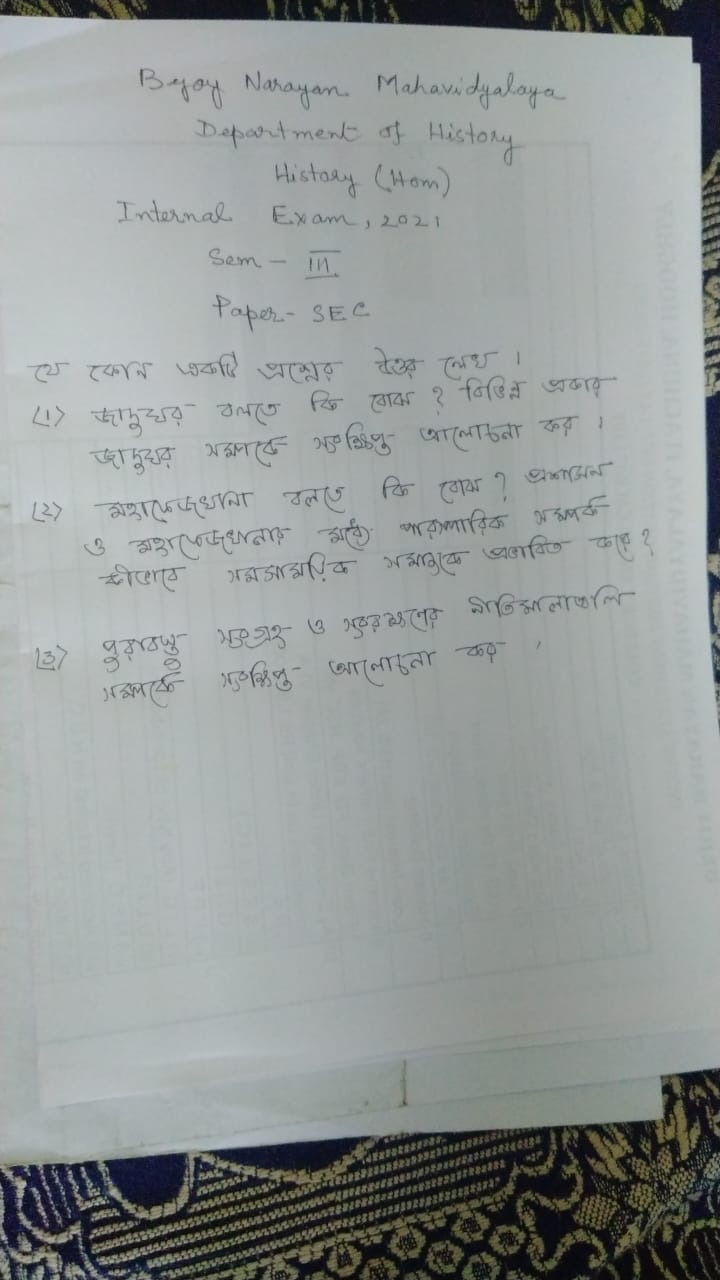 Bejoy Narayan Mahavidyalaya
Department of History
History (Hom)
Internal Exam, 2021
Sem - III
Paper - SEC
যে কোন একটি প্রশ্নের উত্তর লেখ ।
(1) জাদুঘর বলতে কি বোঝ ? বিভিন্ন প্রকার
জাদুঘর সম্পর্কে সংক্ষিপ্ত আলোচনা কর ।
(2) মহাফেজখানা বলতে কি বোঝ ? প্রশাসন
ও মহাফেজখানার মধ্যে পারস্পারিক সম্পর্ক
কীভাবে সমসাময়িক সমাজকে প্রভাবিত করে ?
(3) পুরাবস্তু সংগ্রহ ও সংরক্ষণের নীতিমালাগুলি
সম্পর্কে সংক্ষিপ্ত আলোচনা কর ।